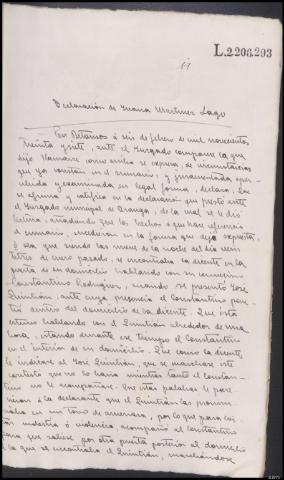 L.2206.293
Declaración de Juana Martinez Lago
En Betanzos á seis de febrero de mil novecientos
treinta y siete, ante el Juzgado comparece la que
dijo llamarse como arriba se expresa, de circunstancias
que ya constan en el sumario; y juramentada, aper-
cibida y examinada en legal forma, declara: Que
se afirma y ratifica en la declaración que prestó ante
el Juzgado municipal de Aranga, de la cual se le dió
lectura, añadiendo que los hechos á que hace referencia
el sumario, sucedieron en la forma que deja expuesta,
ó sea que siendo las nueve de la noche del día vein-
titres de enero pasado, se encontraba la dicente en la
puerta de su domicilio hablando con su convecino
Constantino Rodriguez, cuando se presentó José
Quintián, ante cuya presencia el Constantino pa-
só dentro del domicilio de la dicente. Que ésta
estuvo hablando con el Quintián alrededor de una
hora, estando durante ese tiempo el Constantino
en el interior de su domicilio. Que como la dicente
le indicase al José Quintián, que se marchase éste
contestó que no lo haría mientras tanto el Constan-
tino no le acompañase. Que estas palabras le pare-
cieron á la declarante que el Quintián las pronun-
ciaba en un tono de amenaza, por lo que para evi-
tar molestia ó violencia, acompañó al Constantino
para que saliese por otra puerta posterior al domicilio
á la que se encontraba el Quintián, marchándose